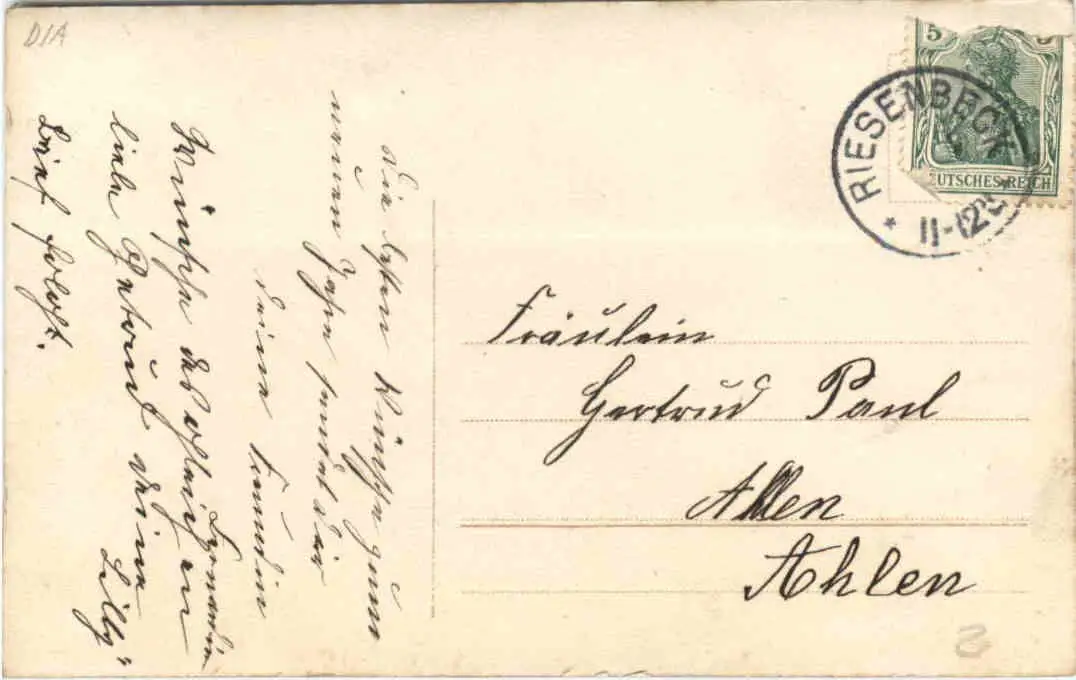 DIA
5
5
DEUTSCHES REICH
RIESENBECK
* 11-12
Die besten Wünsche zum
neuen Jahre sendet Dir
Deine Freundin
Wünsche desgleichen
liebe Gertrud Deine
Lilly
Brief folgt.
Fräulein
Gertrud Paul
Ahlen
Ahlen
2